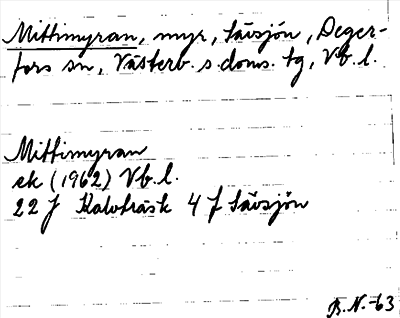 Mittimyran, myr, Sävsjön, Deger-
fors sn, Västerb. s doms. tg, Vb. l.
Mittimyran
ek (1962) Vb. l.
22 J Kalvträsk 4 f Sävsjön
B. N. -63